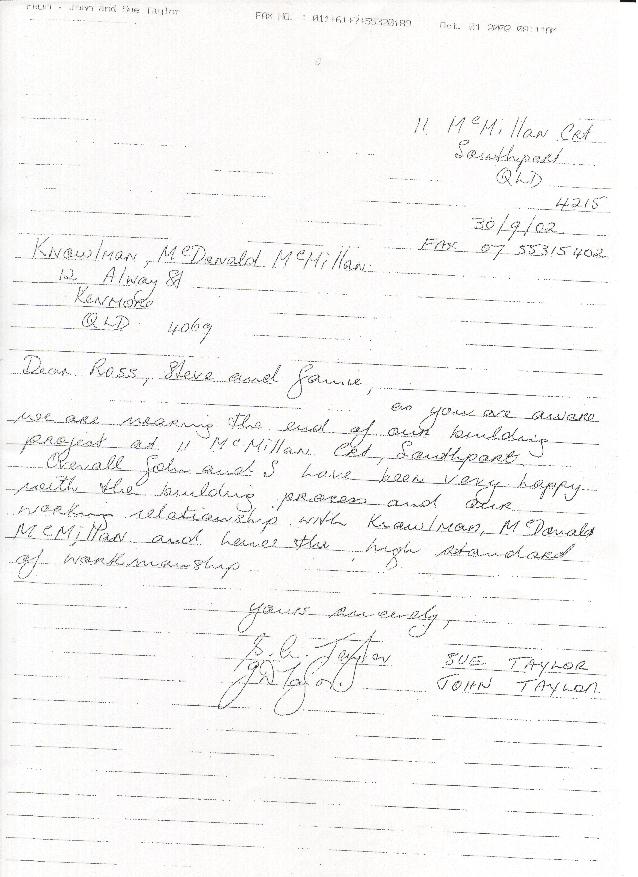 FROM : John and Sue Taylor
FAX NO. :
Oct. 01 2002
11 McMillan Crt
Southport
QLD
4215
30/9/02
FAX 07 55315402
Knowlman, McDonald McMillan
12 Alway St
Kenmore
QLD 4069
Dear Ross, Steve and Janne,
as you are aware
we are nearing the end of our building
project at 11 McMillan Crt, Southport
Overall John and I have been very happy
with the building process and our
working relationship with Knowlman, McDonald
McMillan and hence the high standard
of workmanship
Yours sincerely,
S. A. Taylor SUE TAYLOR
JOHN TAYLOR